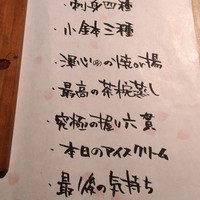 ・刺身四種
・小鉢三種
・深心の焼or揚
・最高の茶椀蒸し
究極の握り六貫
・本日のアイスクリーム
・最後の気持ち